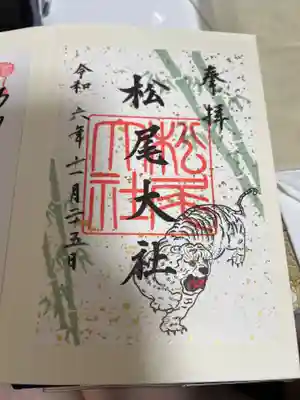 奉拝
松尾大社
松尾大社
令和六年十一月二五日